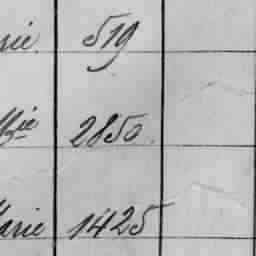 rie 519
Mzie 2850.
Marie 1425